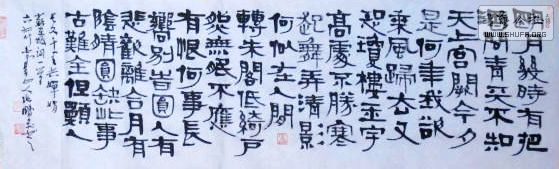 明月幾時有把
酒問青天不知
天上宮闕今夕
是何年我欲
乘風歸去又
恐瓊樓玉宇
高處不勝寒
起舞弄清景
何似在人間
轉朱閣低綺戶
照無眠不應
有恨何事長
嚮別旹圓人有
悲歡離合月有
陰晴圓缺此事
古難全但願人
長久千里共嬋娟